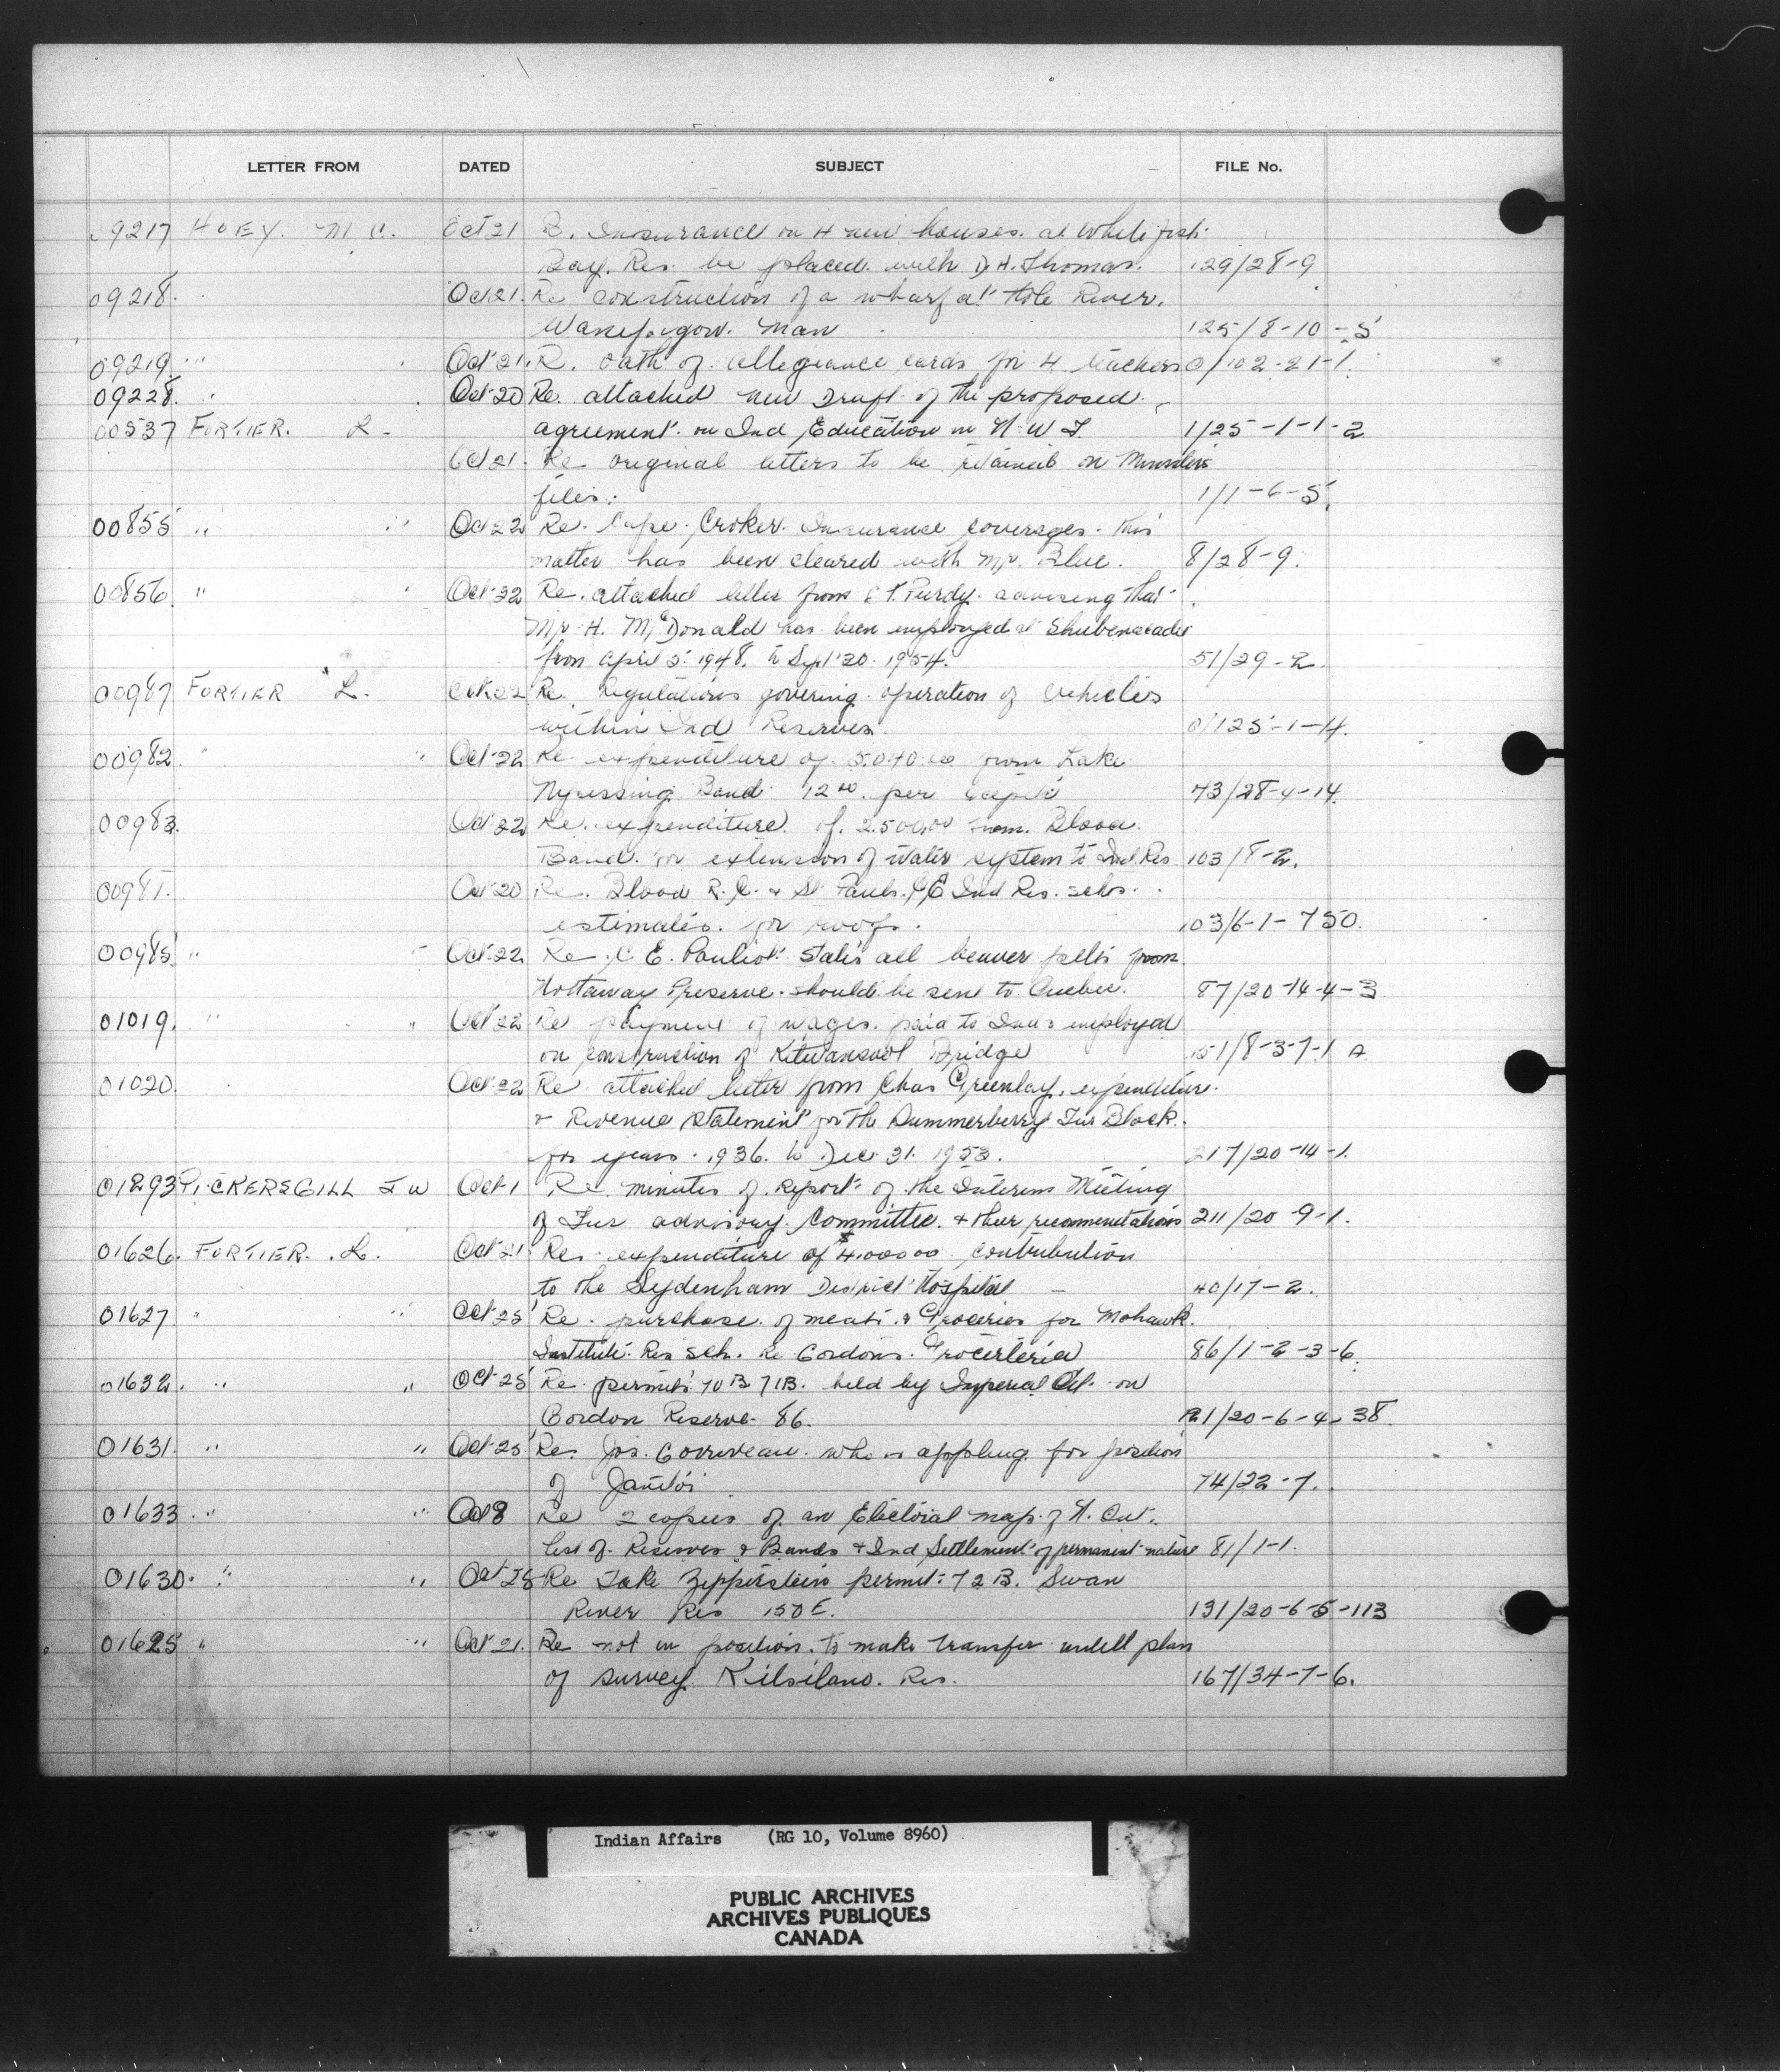 LETTER FROM DATED SUBJECT FILE No.
09217 HOEY. M C. Oct 21 Insurance on 4 new houses at White fish
Bay. Res. be placed with D.H. Thomas. 129/28-9
09218. Oct 21. Re construction of a wharf at Hole River.
Man 125/8-10-5
09219 " Oct 21. R. oath of allegiance cards for 4 teachers 0/102-21-1.
09228. Oct 20 Re. attached new Draft of the proposed
00537 FORTIER. L. agreement on Ind Education in N.W.T. 1/25-1-1-2
Oct 21. Re original letters to be retained on
files. 1/1-6-5
00855 " " Oct 22 Re. Cape Croker Insurance coverages. This
matter has been cleared with Mr. Blue. 8/28-9.
00856. " Oct 22 Re. attached letter from Purdy advising that
Mr H. McDonald has been employed at Shubenacadie
from April 2. 1948. to Sept 20. 1954. 51/29-2.
FORTIER L. Oct 22 Re. Regulations governing operation of vehicles
within Ind Reserves. 0/125-1-4.
00982. " Oct 22 Re expenditure of 5,040.00 from Lake
Nipissing Band 12.00 per capita 43/28-4-14.
00983. Oct 22 Re. expenditure of 2.500.00 from Blood
Band for extension of water system to Ind. Res. 103/8-2.
Oct 20 Re. Blood R.C. & St Pauls. C/E Ind Res. schs.
estimates for roofs. 103/6-1-750.
00985 " Oct 22 Re C E. Pouliot states all beaver pelts from
Nottaway Preserve should be sent to Quebec. 87/20-14-4-3
01019. " " Oct 22 Re payment of wages paid to Inds employed
on construction of Kitwancool Bridge 151/8-3-7-1 A.
01020. Oct 22 Re attached letter from Chas Greenlay, expenditure
& Revenue statement for the Dummerberry Fur Block.
for years 1936. to Dec. 31. 1953. 217/20-14-1.
01293 PICKERSGILL J W Oct 1 Re. minutes of report of the Interim Meeting
of Fur advisory Committee. & their recommendations 211/20-9-1.
01626. FORTIER. L. Oct 21 Re. expenditure of $4.000.00 contribution
to the Sydenham District Hospital 40/17-2.
01627 " " Oct 25 Re. purchase of meats & Groceries for Mohawk.
Institute Res sch. Re Gordons. Groceteria 86/1-2-3-6.
01632. " " Oct 25 Re permits 70B 71B. held by Imperial Oil on
Gordon Reserve 86. /20-6-4-38.
01631. " " Oct 25 Re. Jos. Corriveau who is appling for position
of Janitor 74/22-7.
01633 " " Oct 8 Re 2 copies of an Electoral map of N. Ont.
list of Reserves & Bands & Ind Settlement of permanent nature 81/1-1.
01630. " " Oct 25 Re Jake Zipperstein permit 72B. Swan
River Res 150E. 131/20-6-5-113
01625 " " Oct 21. Re not in position to make transfer untill plan
of survey Kitsilano. Res. 167/34-7-6.
Indian Affairs (RG 10, Volume 8960)
PUBLIC ARCHIVES
ARCHIVES PUBLIQUES
CANADA